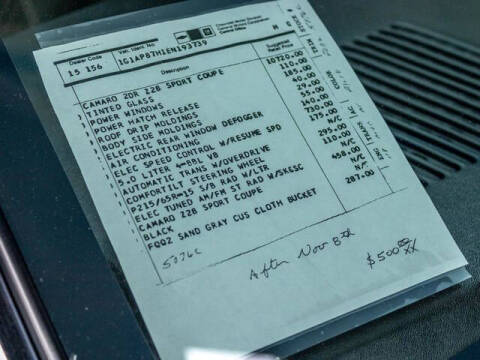 Chevrolet Motor Division
General Motors Corporation
Central Office
Dealer Code
15 156
Veh. Ident No.
1G1AP87H1EN193739
Description
Suggested
Retail Price
CAMARO 2DR Z28 SPORT COUPE 10720.00
TINTED GLASS 110.00
POWER WINDOWS 185.00
POWER HATCH RELEASE 40.00
ROOF DRIP MOLDINGS 29.00
BODY SIDE MOLDINGS 55.00
ELECTRIC REAR WINDOW DEFOGGER 140.00
AIR CONDITIONING 730.00
ELEC SPEED CONTROL W/RESUME SPD 175.00
5.0 LITER 4-BBL V8 N/C
AUTOMATIC TRANS W/OVERDRIVE 295.00
COMFORTILT STEERING WHEEL 110.00
P215/65R-15 S/B RAD W/LTR N/C
ELEC TUNED AM/FM ST RAD W/SKESC 458.00
CAMARO Z28 SPORT COUPE N/C
BLACK N/C
FQQ2 SAND GRAY CUS CLOTH BUCKET 287.00
After Nov 8th
$500